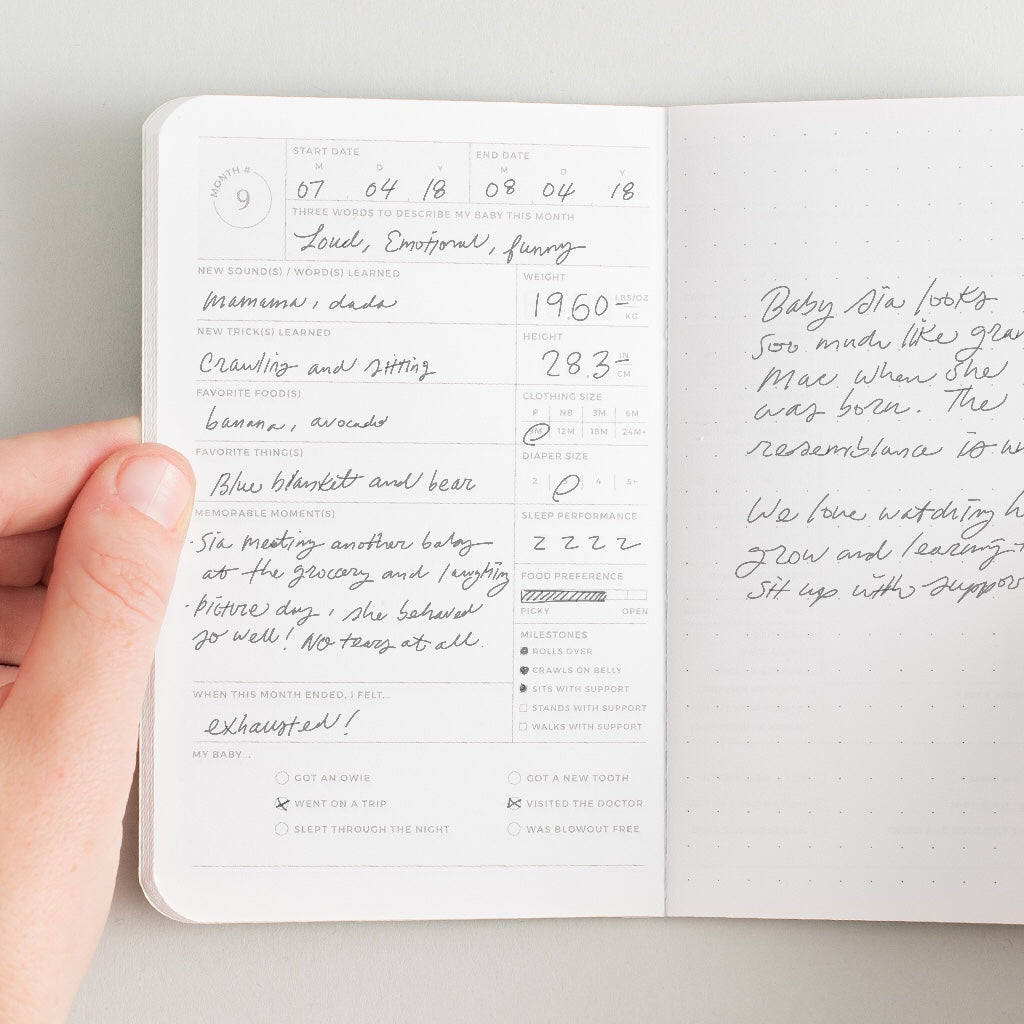 MONTH #
9
START DATE
M D Y
07 04 18
END DATE
M D Y
08 04 18
THREE WORDS TO DESCRIBE MY BABY THIS MONTH
Loud, Emotional, funny
NEW SOUND(S) / WORD(S) LEARNED
mamama, dada
NEW TRICK(S) LEARNED
Crawling and sitting
FAVORITE FOOD(S)
banana, avocado
FAVORITE THING(S)
Blue blankett and bear
MEMORABLE MOMENT(S)
· Sia meeting another baby
at the grocery and laughing
· picture day, she behaved
so well! No tears at all.
WHEN THIS MONTH ENDED, I FELT...
exhausted!
WEIGHT
19.60 LBS/OZ
KG
HEIGHT
28.3 IN
CM
CLOTHING SIZE
P NB 3M 6M
9M 12M 18M 24M+
DIAPER SIZE
2 4 5+
SLEEP PERFORMANCE
Z Z Z Z
FOOD PREFERENCE
PICKY OPEN
MILESTONES
ROLLS OVER
CRAWLS ON BELLY
SITS WITH SUPPORT
STANDS WITH SUPPORT
WALKS WITH SUPPORT
MY BABY...
GOT AN OWIE
WENT ON A TRIP
SLEPT THROUGH THE NIGHT
GOT A NEW TOOTH
VISITED THE DOCTOR
WAS BLOWOUT FREE
Baby Sia looks
soo much like
Mae when she
was born. The
resemblance is
We love watching
grow and learning
sit up with